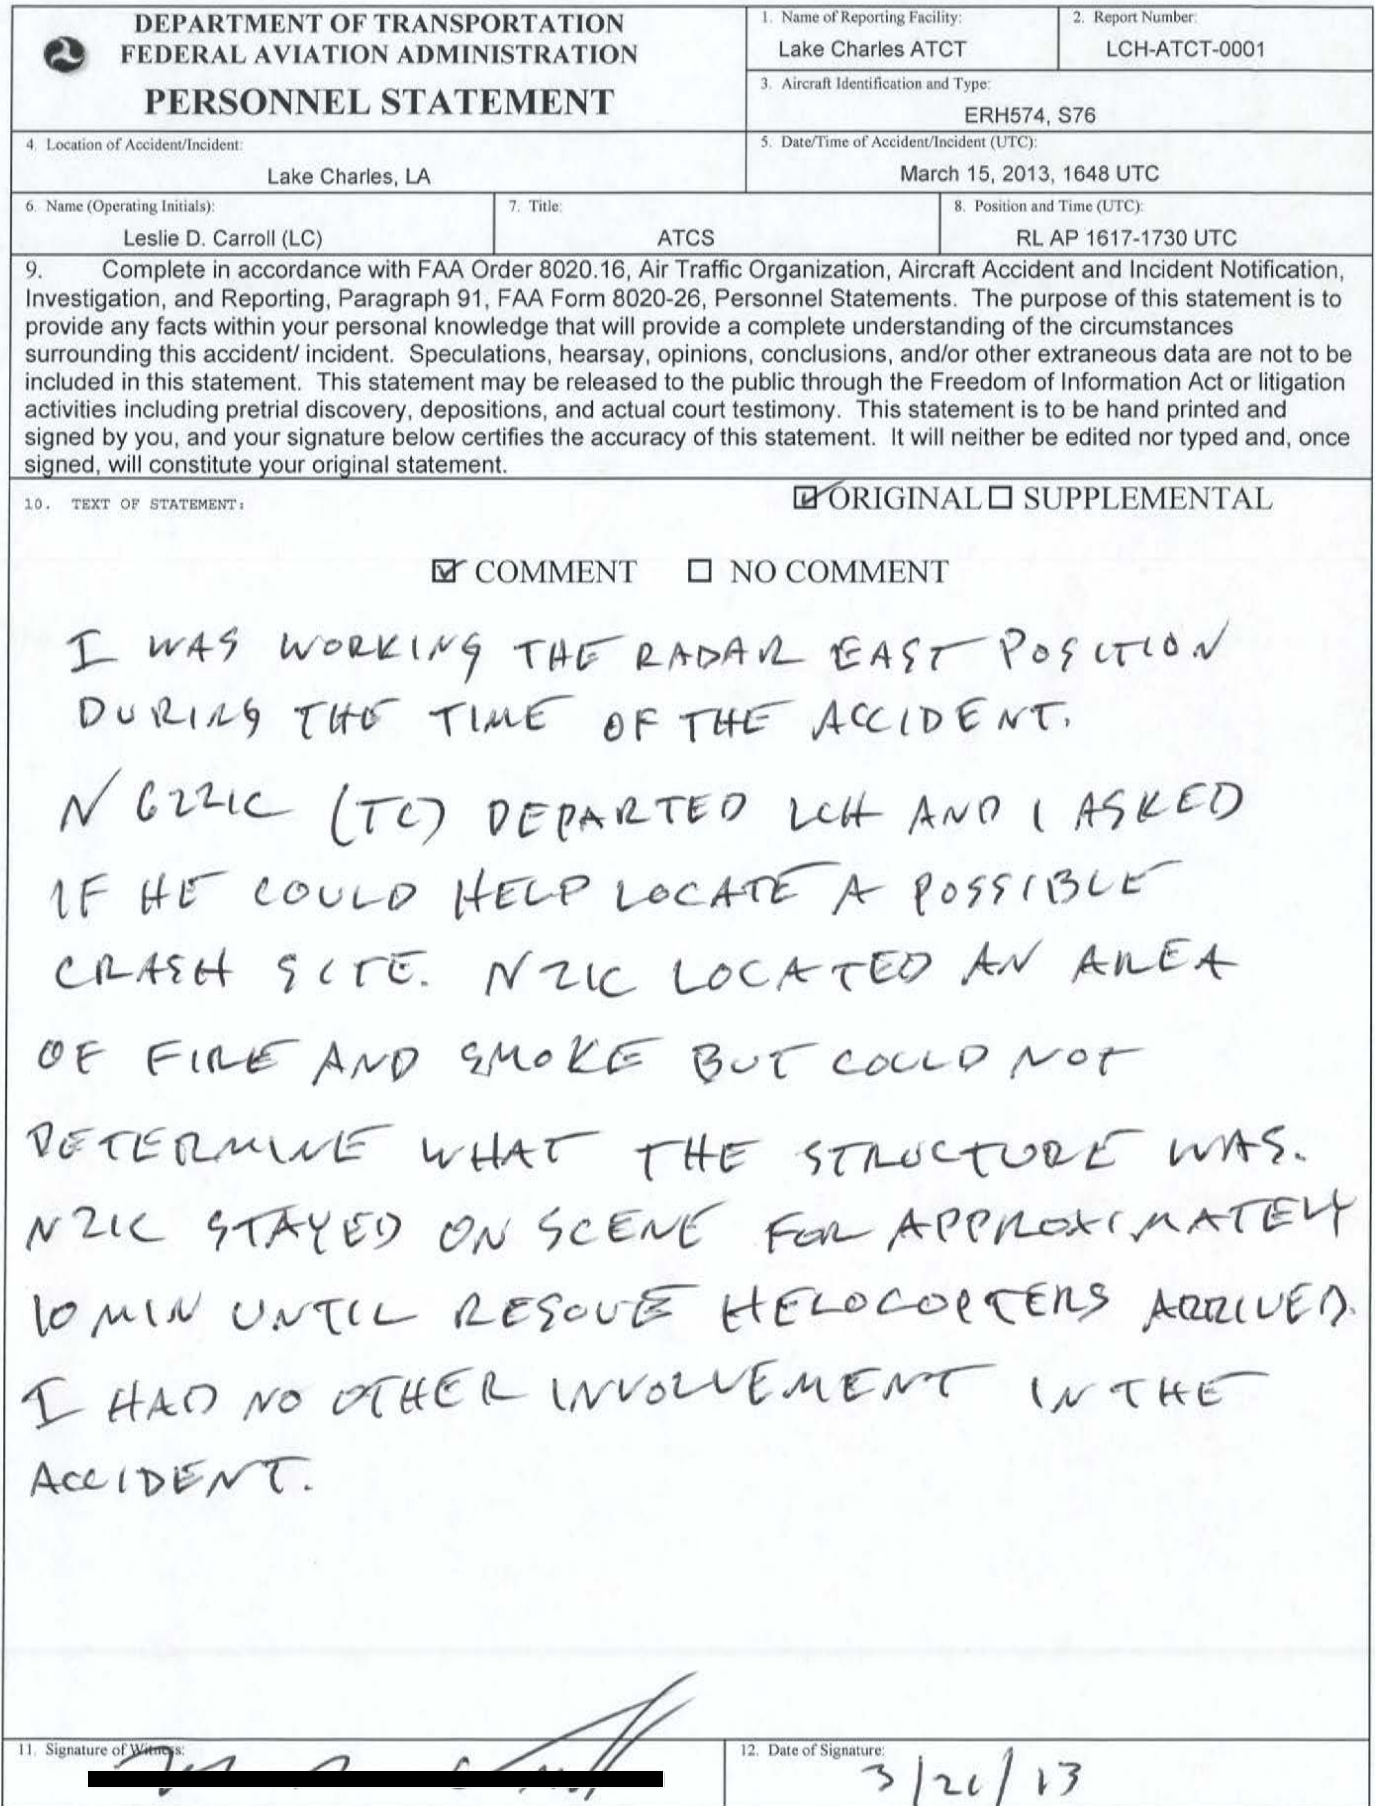 DEPARTMENT OF TRANSPORTATION
FEDERAL AVIATION ADMINISTRATION
PERSONNEL STATEMENT
1. Name of Reporting Facility:
Lake Charles ATCT
2. Report Number:
LCH-ATCT-0001
3. Aircraft Identification and Type:
ERH574, S76
4. Location of Accident/Incident:
Lake Charles, LA
5. Date/Time of Accident/Incident (UTC):
March 15, 2013, 1648 UTC
6. Name (Operating Initials):
Leslie D. Carroll (LC)
7. Title:
ATCS
8. Position and Time (UTC):
RL AP 1617-1730 UTC
9. Complete in accordance with FAA Order 8020.16, Air Traffic Organization, Aircraft Accident and Incident Notification,
Investigation, and Reporting, Paragraph 91, FAA Form 8020-26, Personnel Statements. The purpose of this statement is to
provide any facts within your personal knowledge that will provide a complete understanding of the circumstances
surrounding this accident/ incident. Speculations, hearsay, opinions, conclusions, and/or other extraneous data are not to be
included in this statement. This statement may be released to the public through the Freedom of Information Act or litigation
activities including pretrial discovery, depositions, and actual court testimony. This statement is to be hand printed and
signed by you, and your signature below certifies the accuracy of this statement. It will neither be edited nor typed and, once
signed, will constitute your original statement.
10. TEXT OF STATEMENT:
☑ ORIGINAL ☐ SUPPLEMENTAL
☑ COMMENT ☐ NO COMMENT
I WAS WORKING THE RADAR EAST POSITION
DURING THE TIME OF THE ACCIDENT.
N6221C (TC) DEPARTED LCH AND I ASKED
IF HE COULD HELP LOCATE A POSSIBLE
CRASH SITE. N21C LOCATED AN AREA
OF FIRE AND SMOKE BUT COULD NOT
DETERMINE WHAT THE STRUCTURE WAS.
N21C STAYED ON SCENE FOR APPROXIMATELY
10 MIN UNTIL RESCUE HELOCOPTERS ARRIVED.
I HAD NO OTHER INVOLVEMENT IN THE
ACCIDENT.
11. Signature of Witness:
12. Date of Signature: